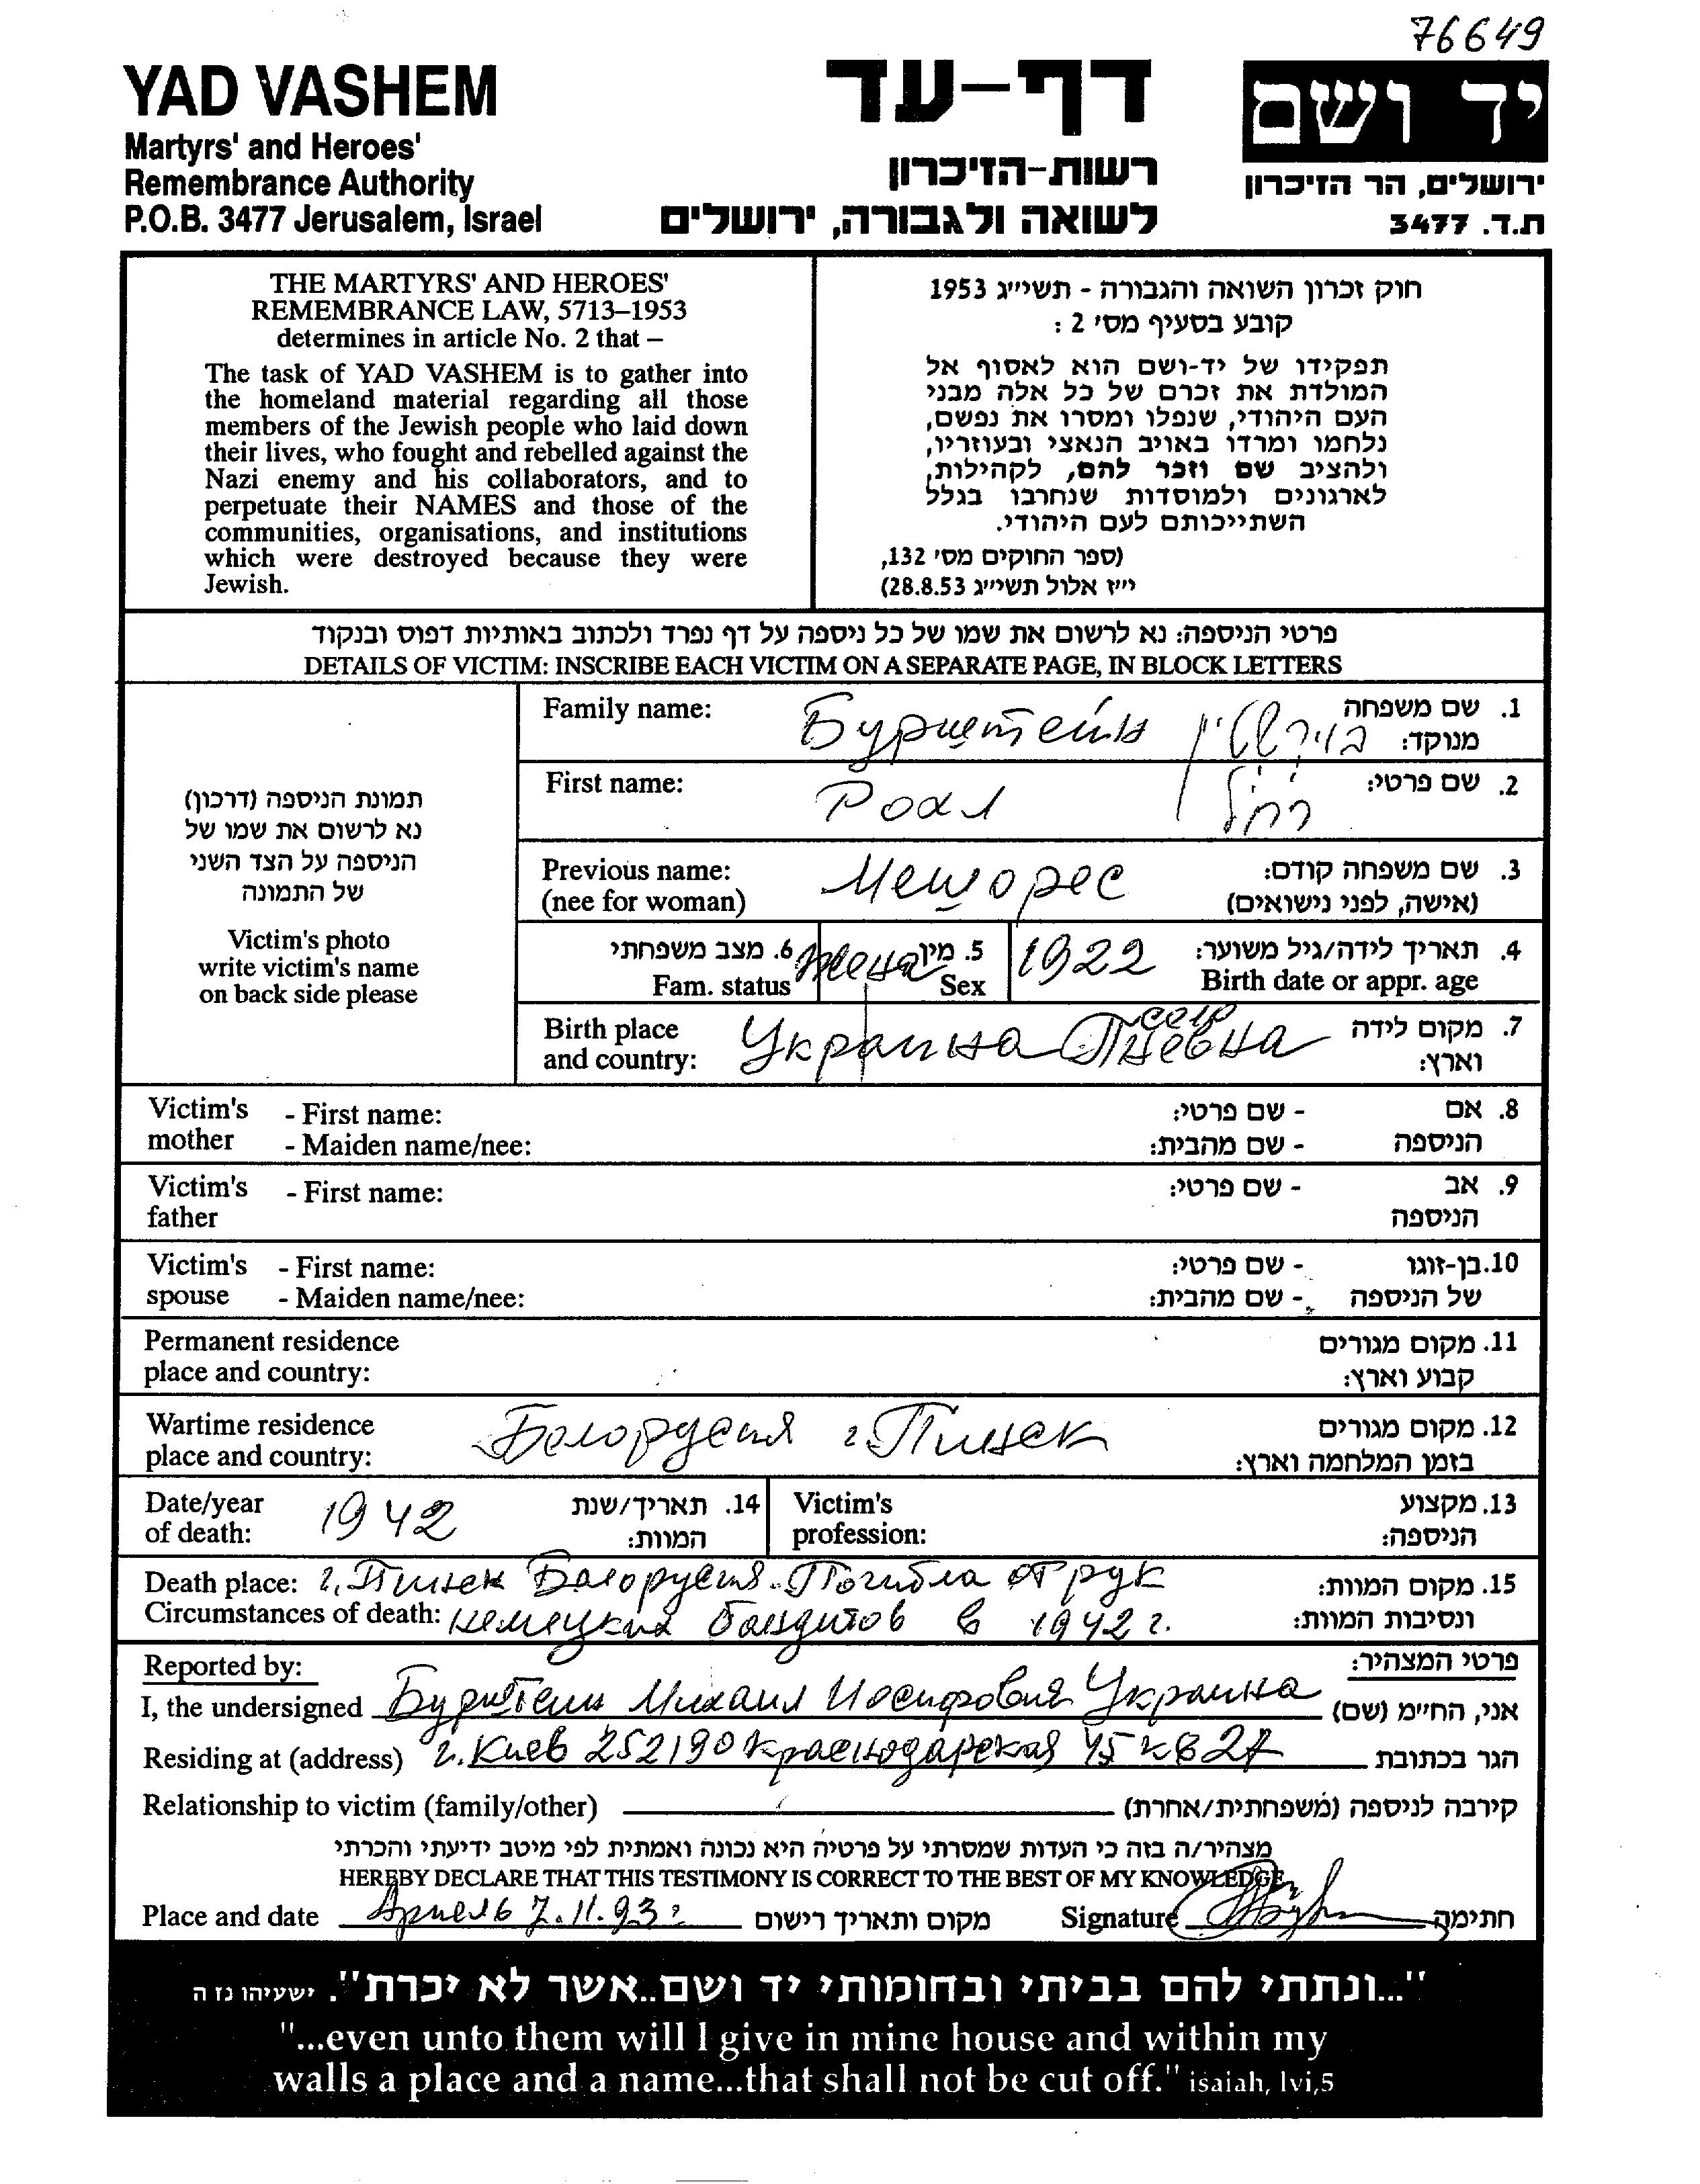 76649
YAD VASHEM
Martyrs' and Heroes'
Remembrance Authority
P.O.B. 3477 Jerusalem, Israel
דף-עד
רשות-הזיכרון
לשואה ולגבורה, ירושלים
יד ושם
ירושלים, הר הזיכרון
ת.ד. 3477
THE MARTYRS' AND HEROES'
REMEMBRANCE LAW, 5713–1953
determines in article No. 2 that –
The task of YAD VASHEM is to gather into
the homeland material regarding all those
members of the Jewish people who laid down
their lives, who fought and rebelled against the
Nazi enemy and his collaborators, and to
perpetuate their NAMES and those of the
communities, organisations, and institutions
which were destroyed because they were
Jewish.
חוק זכרון השואה והגבורה - תשי״ג 1953
קובע בסעיף מס׳ 2 :
תפקידו של יד-ושם הוא לאסוף אל
המולדת את זכרם של כל אלה מבני
העם היהודי, שנפלו ומסרו את נפשם,
נלחמו ומרדו באויב הנאצי ובעוזריו,
ולהציב שם וזכר להם, לקהילות,
לארגונים ולמוסדות שנחרבו בגלל
השתייכותם לעם היהודי.
(ספר החוקים מס׳ 132,
י״ז אלול תשי״ג 28.8.53)
פרטי הניספה: נא לרשום את שמו של כל ניספה על דף נפרד ולכתוב באותיות דפוס ובנקוד
DETAILS OF VICTIM: INSCRIBE EACH VICTIM ON A SEPARATE PAGE, IN BLOCK LETTERS
תמונת הניספה (דרכון)
נא לרשום את שמו של
הניספה על הצד השני
של התמונה
Victim's photo
write victim's name
on back side please
Family name: Бурштейн בורשטיין 1. שם משפחה
מנוקד:
First name: Роал רחל 2. שם פרטי:
Previous name: Мешорес 3. שם משפחה קודם:
(nee for woman) (אישה, לפני נישואים)
6. מצב משפחתי 5. מין жена 1922 4. תאריך לידה/גיל משוער:
Fam. status Sex Birth date or appr. age
Birth place Украина 7. מקום לידה
and country: וארץ:
Victim's - First name: - שם פרטי: 8. אם
mother - Maiden name/nee: - שם מהבית: הניספה
Victim's - First name: - שם פרטי: 9. אב
father הניספה
Victim's - First name: - שם פרטי: 10. בן-זוגו
spouse - Maiden name/nee: - שם מהבית: של הניספה
Permanent residence 11. מקום מגורים
place and country: קבוע וארץ:
Wartime residence Белорусия г. Пинск 12. מקום מגורים
place and country: בזמן המלחמה וארץ:
Date/year 1942 14. תאריך/שנת Victim's 13. מקצוע
of death: המוות: profession: הניספה:
Death place: г. Пинск Балорусия. Погибла от рук 15. מקום המוות:
Circumstances of death: немецких бандитов в 1942 г. ונסיבות המוות:
Reported by: פרטי המצהיר:
I, the undersigned Бурштейн Михаил Иосифович Украина אני, הח״מ (שם)
Residing at (address) г. Киев 252190 Краснодарская 45 кв 27 הגר בכתובת
Relationship to victim (family/other) קירבה לניספה (משפחתית/אחרת)
מצהיר/ה בזה כי העדות שמסרתי על פרטיה היא נכונה ואמתית לפי מיטב ידיעתי והכרתי
HEREBY DECLARE THAT THIS TESTIMONY IS CORRECT TO THE BEST OF MY KNOWLEDGE.
Place and date 7.11.93 г מקום ותאריך רישום Signature חתימה
"...ונתתי להם בביתי ובחומותי יד ושם..אשר לא יכרת". ישעיהו נז ה
"...even unto them will I give in mine house and within my
walls a place and a name...that shall not be cut off." isaiah, lvi,5